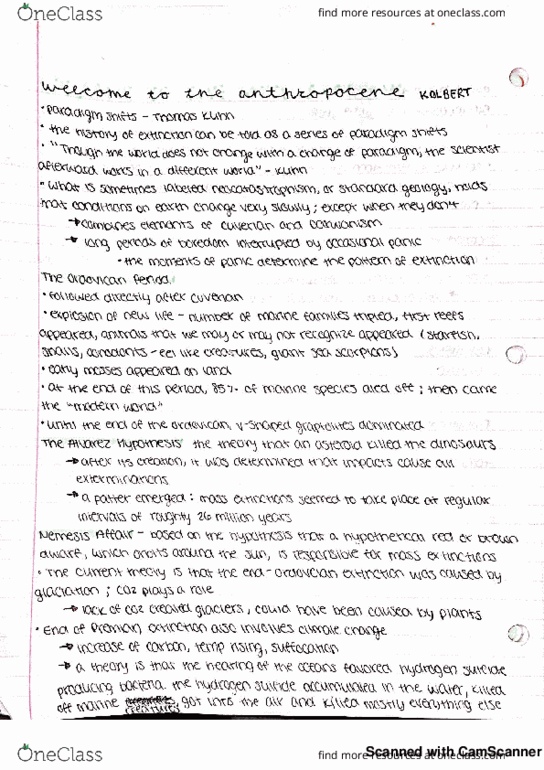 OneClass
find more resources at oneclass.com
welcome to the anthropocene KOLBERT
• paradigm shifts - Thomas Kuhn
• the history of extinction can be told as a series of paradigm shifts
• "Though the world does not change with a change of paradigm, the scientist
afterward works in a different world" - Kuhn
• What is sometimes labeled neocatastrophism, or standard geology, holds
that conditions on earth change very slowly; except when they don't
→ combines elements of cuverian and darwinism
→ long periods of boredom interrupted by occasional panic
• the moments of panic determine the pattern of extinction
The ordovican period
• followed directly after cuverian
• explosion of new life - number of marine families tripled, first reefs
appeared, animals that we may or may not recognize appeared (starfish,
snails, conodonts - eel like creatures, giant sea scorpions)
• early mosses appeared on land
• at the end of this period, 85% of marine species died off; then came
the "modern world"
• until the end of the ordovican, v-shaped graptolites dominated
The Alvarez Hypothesis the theory that an asteroid killed the dinosaurs
→ after its creation, it was determined that impacts cause all
exterminations
→ a patter emerged: mass extinctions seemed to take place at regular
intervals of roughly 26 million years
Nemesis Affair - based on the hypothesis that a hypothetical red or brown
dwarf, which orbits around the sun, is responsible for mass extinctions
• The current theory is that the end-ordovician extinction was caused by
glaciation; CO2 plays a role
→ lack of CO2 created glaciers, could have been caused by plants
• End of Premian extinction also involves climate change
→ increase of carbon, temp rising, suffocation
→ a theory is that the heating of the oceans favored hydrogen sulfide
producing bacteria. the hydrogen sulfide accumulated in the water, killed
off marine creatures, got into the air and killed mostly everything else
Scanned with CamScanner
OneClass
find more resources at oneclass.com